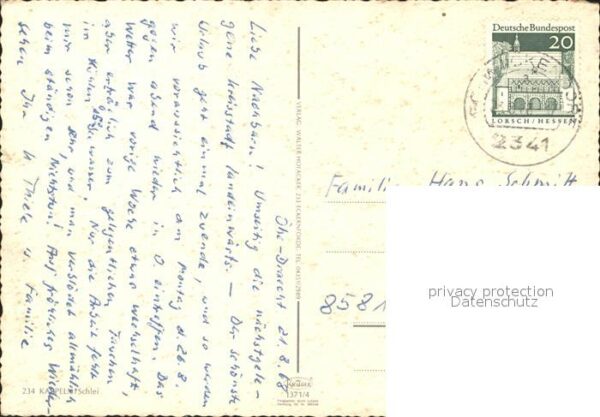 Öhe-Draecht 21.8.68
Liebe Nachbarn! Umseitig die nächstgele-
gene Kreisstadt landeinwärts. – Der schönste
Urlaub geht einmal zuende, und so werden
wir voraussichtlich am Montag d. 26.8.
gegen abend wieder in O. eintreffen. Das
Wetter war vorige Woche etwas wechselhaft,
aber erträglich zum gelegentlichen Tauchen
im kühlen Ostseewasser. Nur die Arbeit fehlt
mir schon sehr, und man verblödet allmählich
beim ständigen Nichtstun! Auf fröhliches Wieder-
sehen Ihr H. Thiele u. Familie
234 KAPPELN/Schlei
VERLAG WALTER HOFACKER, 233 ECKERNFÖRDE, TEL.
KRÜGER
1371/4
Deutsche Bundespost
20
LORSCH/HESSEN
2341
Familie Hans Schmitt
8581
privacy protection
Datenschutz